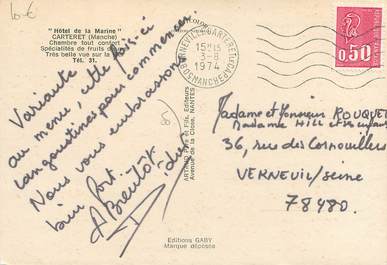 10€
"Hôtel de la Marine"
CARTERET (Manche)
Chambre tout confort
Spécialités de fruits
Très belle vue sur la
Tél. 31.
Variante
au menu, cette fois-ci
langoustines pour commencer.
Nous vous embrassons
bien fort.
ARTAUD Père et Fils, Editeurs
Avenue de la Close, NANTES
Editions GABY
Marque déposée
BARNEVILLE-CARTERET
15H15
3-8
1974
MANCHE
0,50
Madame et Monsieur ROUQUET
Madame Hill et
36, rue des Cornouillers
VERNEUIL/Seine
78480.